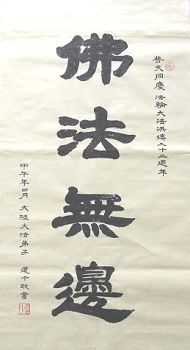 普天同慶 法輪大法洪傳二十二週年
佛法無邊
甲午年四月 大陸大法弟子 敬書